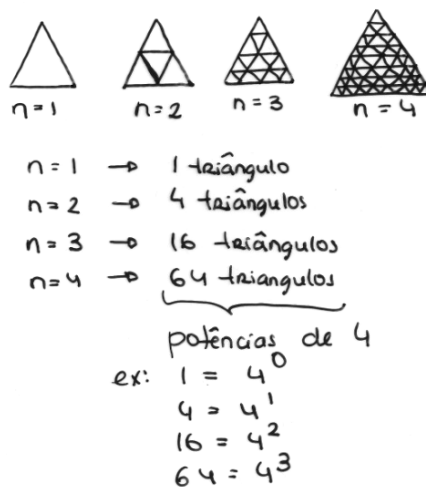 n=1 n=2 n=3 n=4
n=1 → 1 triângulo
n=2 → 4 triângulos
n=3 → 16 triângulos
n=4 → 64 triangulos
potências de 4
ex: 1 = 4⁰
4 = 4¹
16 = 4²
64 = 4³